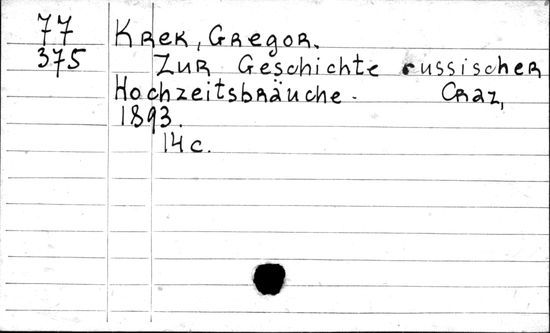 77 Krek, Gregor.
375 Zur Geschichte russischer
Hochzeitsbräuche. Graz,
1893.
14 c.